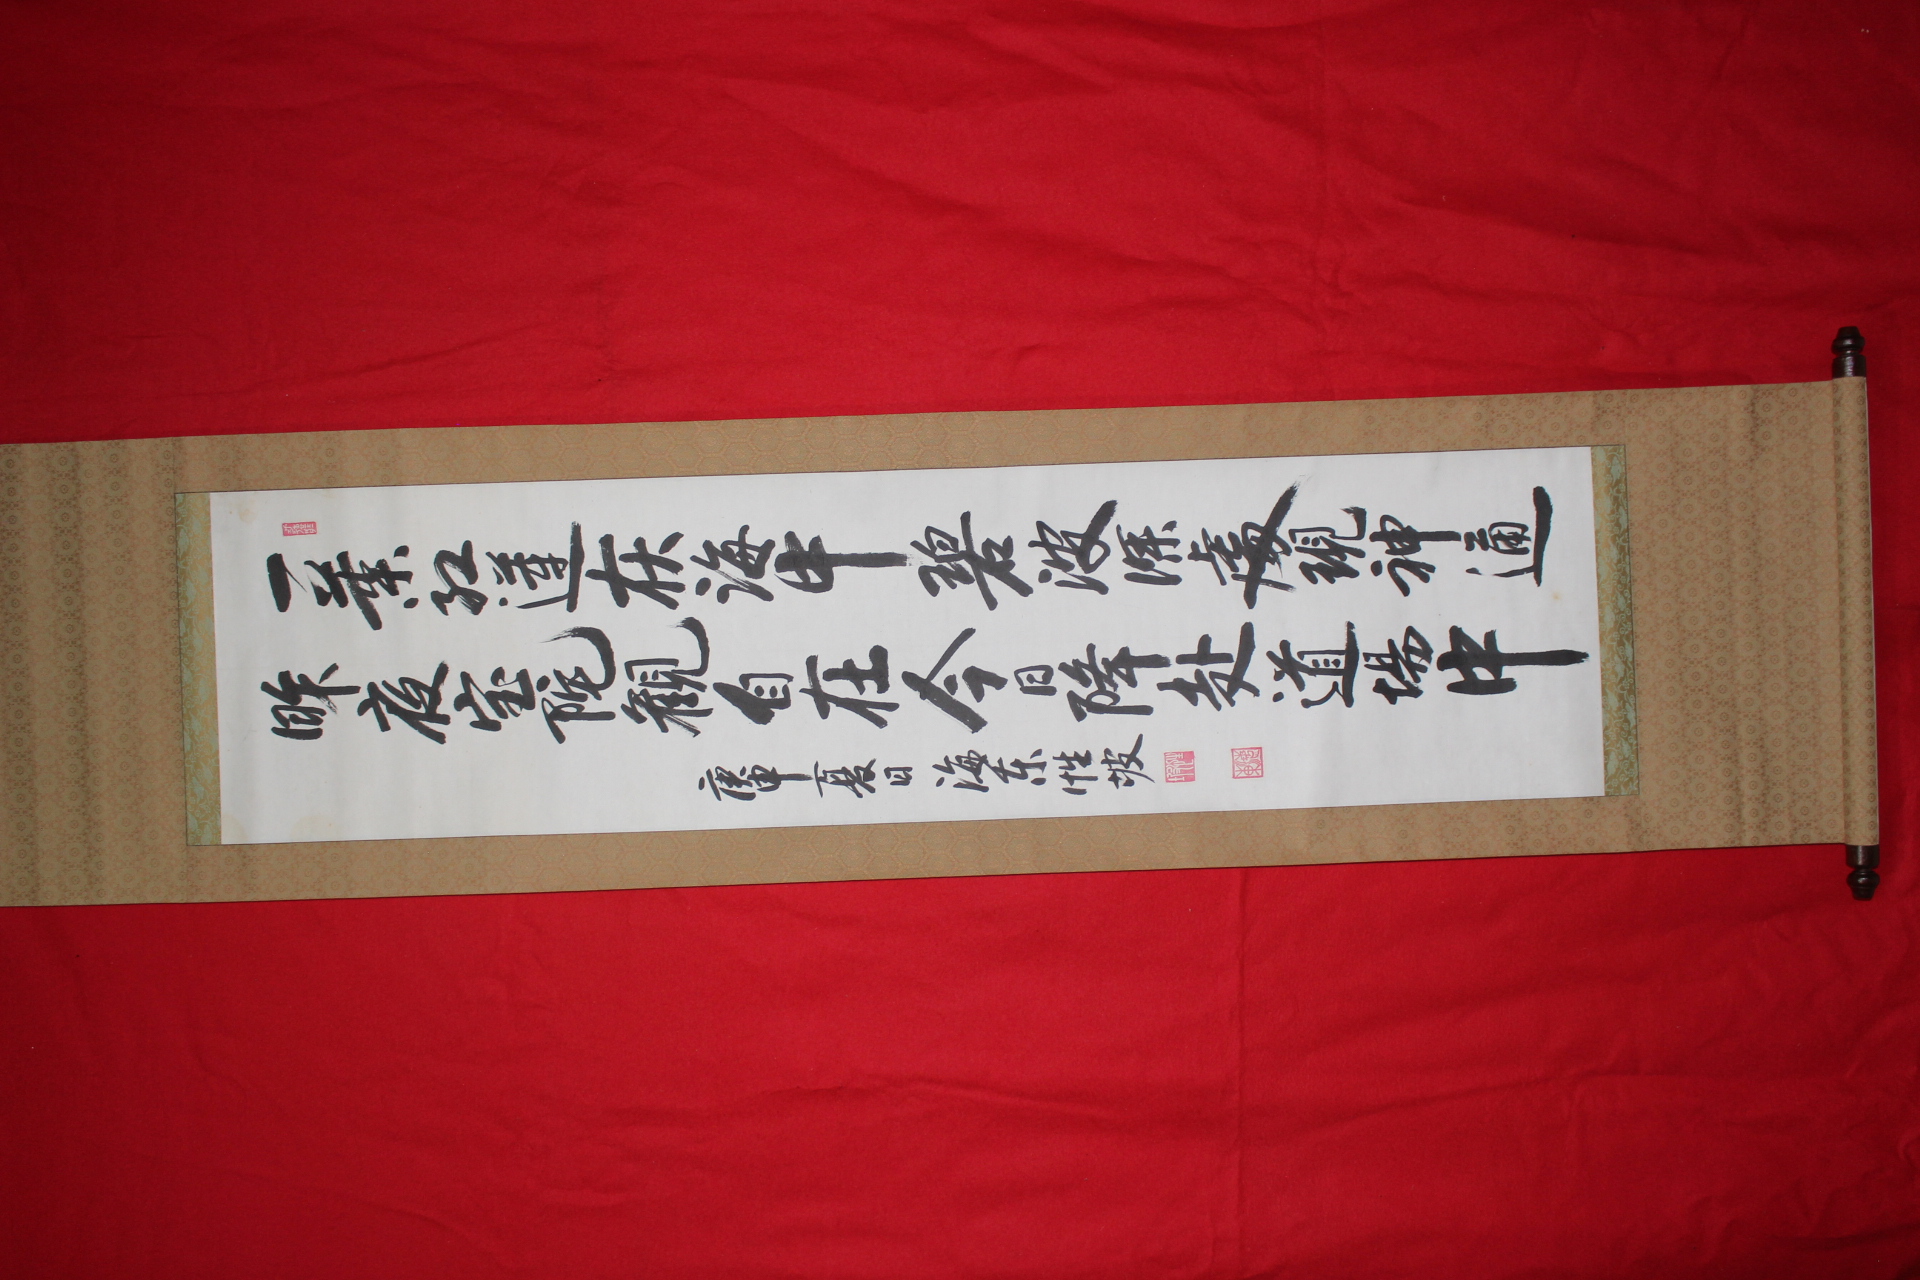 一葉紅蓮在海中碧波深處現神通
昨夜宝陀觀自在今日降赴道場中
庚申夏日 海東性坡